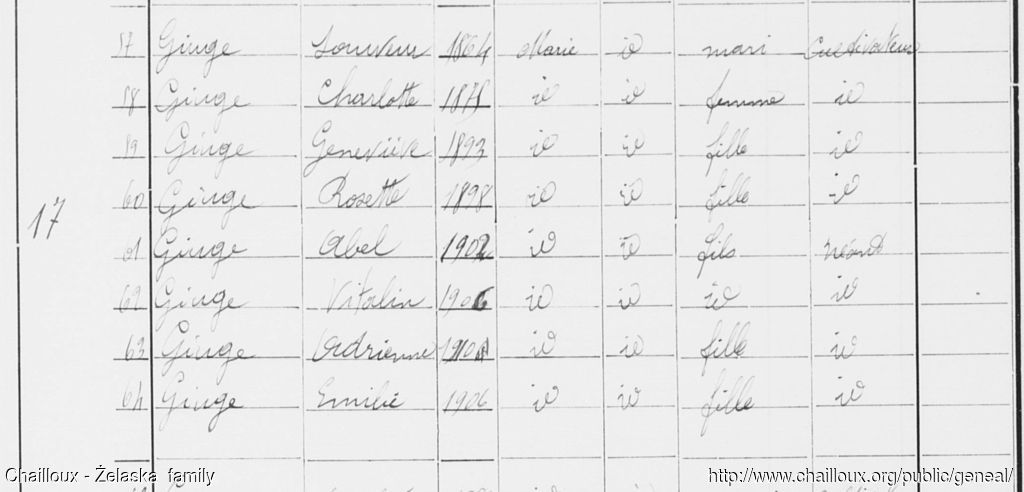 57 Ginge Louveau 1864 Marie id mari Cultivateur
58 Ginge Charlotte 1878 id id femme id
59 Ginge Geneviève 1893 id id fille id
60 Ginge Rosette 1898 id id fille id
17
61 Ginge Abel 1902 id id fils néant
62 Ginge Vitalin 1906 id id id id
63 Ginge Adrienne id id fille id
64 Ginge Emilie 1906 id id fille id
Chailloux - Żelaska family
http://www.chailloux.org/public/geneal/